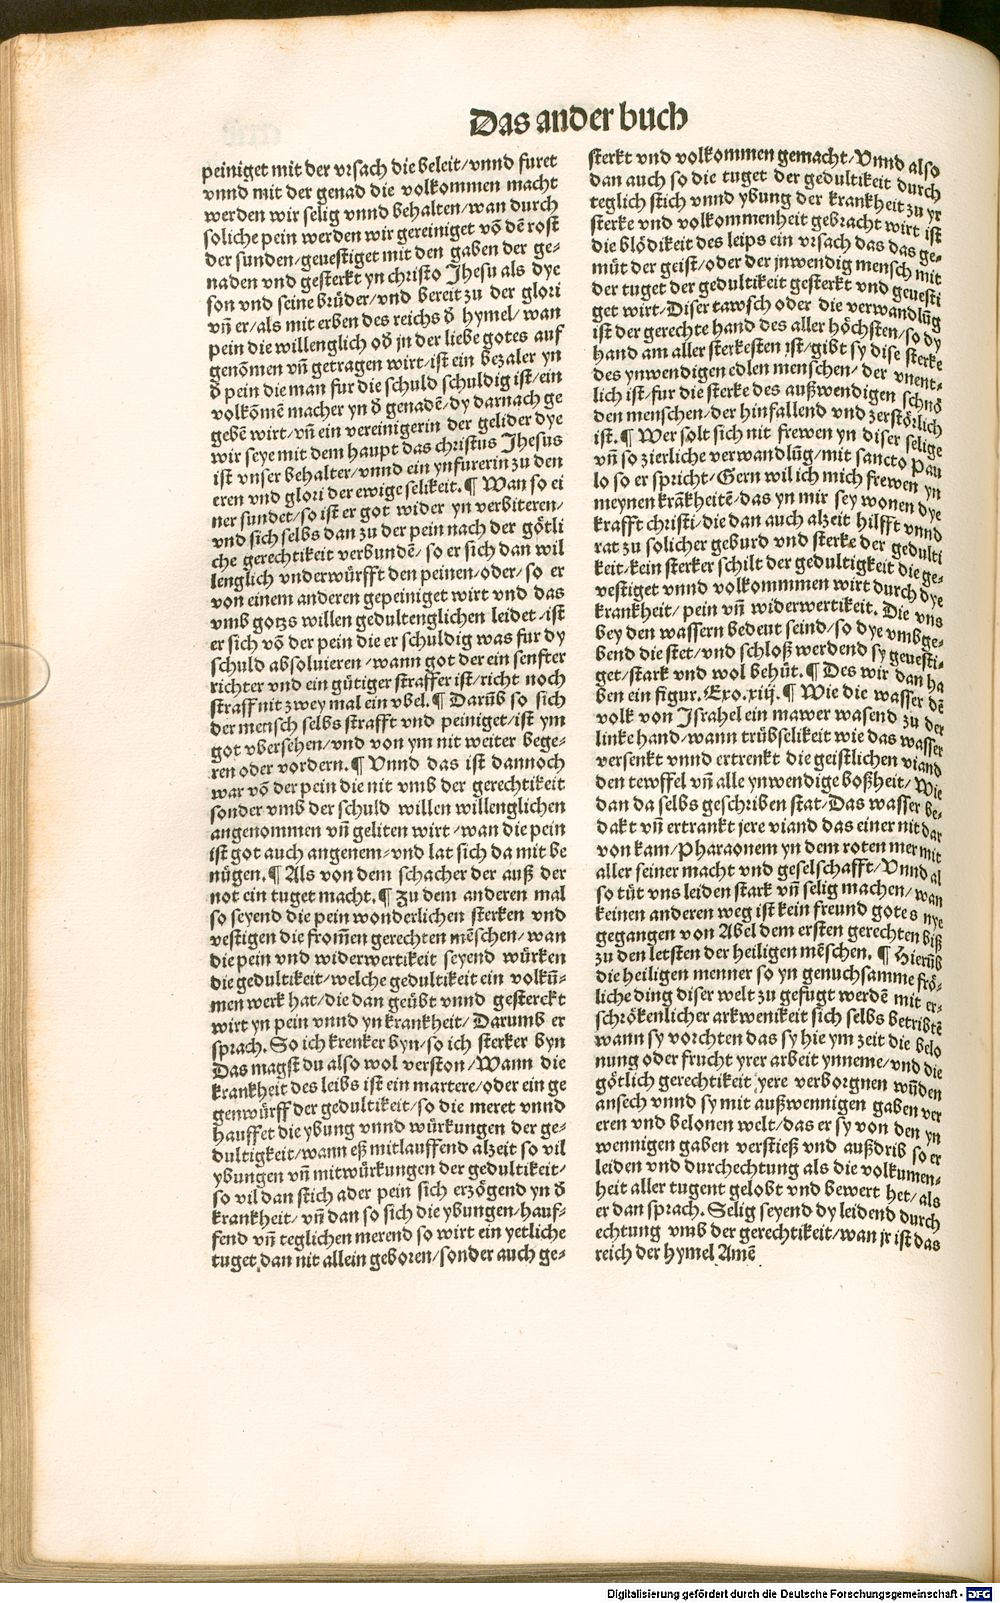 Das ander buch
peiniget mit der vrsach die beleit/vnnd furet
vnnd mit der genad die volkommen macht
werden wir selig vnnd behalten/wan durch
soliche pein werden wir gereiniget võ dẽ rost
der sunden/geuestiget mit den gaben der ge⸗
naden vnd gesterkt yn christo Jhesu als dye
son vnd seine brüder/vnd bereit zu der glori
vñ er/als mit erben des reichs ð hymel/wan
pein die willenglich oð jn der liebe gotes auf
genõmen vñ getragen wirt/ist ein bezaler yn
ð pein die man fur die schuld schuldig ist/ein
volkõmẽ macher yn ð genadẽ/dy darnach ge
gebẽ wirt/vñ ein vereinigerin der gelider dye
wir seye mit dem haupt das christus Jhesus
ist vnser behalter/vnnd ein ynfurerin zu den
eren vnd glori der ewige selikeit.¶ Wan so ei
ner sundet/so ist er got wider yn verbiteren/
vnd sich selbs dan zu der pein nach der götli
che gerechtikeit verbundẽ/so er sich dan wil
lenglich vnderwürfft den peinen/oder/so er
von einem anderen gepeiniget wirt vnd das
vmb gotzs willen gedultenglichen leidet/ist
er sich võ der pein die er schuldig was fur dy
schuld absoluieren/wann got der ein senfter
richter vnd ein gütiger straffer ist/richt noch
straff nit zwey mal ein vbel.¶ Darũb so sich
der mensch selbs strafft vnd peiniget/ist ym
got vbersehen/vnd von ym nit weiter bege⸗
ren oder vordern.¶ Vnnd das ist dannoch
war võ der pein die nit vmb der gerechtikeit
sonder vmb der schuld willen willenglichen
angenommen vñ geliten wirt/wan die pein
ist got auch angenem/vnd lat sich da mit be
nügen.¶ Als von dem schacher der auß der
not ein tuget macht.¶ Zu dem anderen mal
so seyend die pein wonderlichen sterken vnd
vestigen die from̃en gerechten mẽschen/wan
die pein vnd widerwertikeit seyend würken
die gedultikeit/welche gedultikeit ein volkũ⸗
men werk hat/die dan geübt vnnd gesterckt
wirt yn pein vnnd yn krankheit/Darumb er
sprach. So ich krenker byn/so ich sterker byn
Das magst du also wol verston/Wann die
krankheit des leibs ist ein martere/oder ein ge
genwürff der gedultikeit/so die meret vnnd
hauffet die ybung vnnd würkungen der ge⸗
dultigkeit/wann eß mitlauffend alzeit so vil
ybungen vñ mitwürkungen der gedultikeit/
so vil dan stich ader pein sich erzögend yn ð
krankheit/vñ dan so sich die ybungen/hauf⸗
fend vñ teglichen merend so wirt ein yetliche
tuget dan nit allein geboren/sonder auch ge⸗
sterkt vnd volkommen gemacht/Vnnd also
dan auch so die tuget der gedultikeit durch
teglich stich vnnd ybung der krankheit zu yr
sterke vnd volkommenheit gebracht wirt ist
die blödikeit des leips ein vrsach das das ge⸗
müt der geist/oder der jnwendig mensch mit
der tuget der gedultikeit gesterkt vnd geuesti
get wirt/Diser tawsch oder die verwandlũg
ist der gerechte hand des aller höchsten/so dy
hand am aller sterkesten ist/gibt sy dise sterke
des ynwendigen edlen menschen/der vnent⸗
lich ist/fur die sterke des außwendigen schnö
den menschen/der hinfallend vnd zerstörlich
ist.¶ Wer solt sich nit frewen yn diser selige
vñ so zierliche verwandlũg/mit sancto Pau
lo so er spricht/Gern wil ich mich frewen yn
meynen krãkheitẽ/das yn mir sey wonen dye
krafft christi/die dan auch alzeit hilfft vnnd
rat zu solicher geburd vnd sterke der gedulti
keit/kein sterker schilt der gedultigkeit die ge⸗
vestiget vnnd volkommmen wirt durch dye
krankheit/pein vñ widerwertikeit. Die vns
bey den wassern bedeut seind/so dye vmbge⸗
bend die stet/vnd schloß werdend sy geuesti⸗
get/stark vnd wol behüt.¶ Des wir dan ha
ben ein figur.Exo.xiij.¶ Wie die wasser dẽ
volk von Jsrahel ein mawer wasend zu der
linke hand/wann trübselikeit wie das wasser
versenkt vnnd ertrenkt die geistlichen viand
den tewffel vñ alle ynwendige boßheit/Wie
dan da selbs geschriben stat/Das wasser be⸗
dakt vñ ertrankt jere viand das einer nit dar
von kam/Pharaonem yn dem roten mer mit
aller seiner macht vnd geselschafft/Vnnd al
so tüt vns leiden stark vñ selig machen/wan
keinen anderen weg ist kein freund gotes nye
gegangen von Abel dem ersten gerechten biß
zu den letsten der heiligen mẽschen. ¶ Hierũb
die heiligen menner so yn genuchsamme frö⸗
liche ding diser welt zu gefugt werdẽ mit er⸗
schrökenlicher arkwenikeit sich selbs betribtẽ
wann sy vorchten das sy hie ym zeit die belo
nung oder frucht yrer arbeit ynneme/vnd die
götlich gerechtikeit yere verborgnen wũden
ansech vnnd sy mit außwennigen gaben ver
eren vnd belonen welt/das er sy von den yn
wennigen gaben verstieß vnd außdrib so er
leiden vnd durchechtung als die volkumen⸗
heit aller tugent gelobt vnd bewert het/als
er dan sprach. Selig seyend dy leidend durch
echtung vmb der gerechtikeit/wan jr ist das
reich der hymel Amẽ
Digitalisierung gefördert durch die Deutsche Forschungsgemeinschaft - DFG